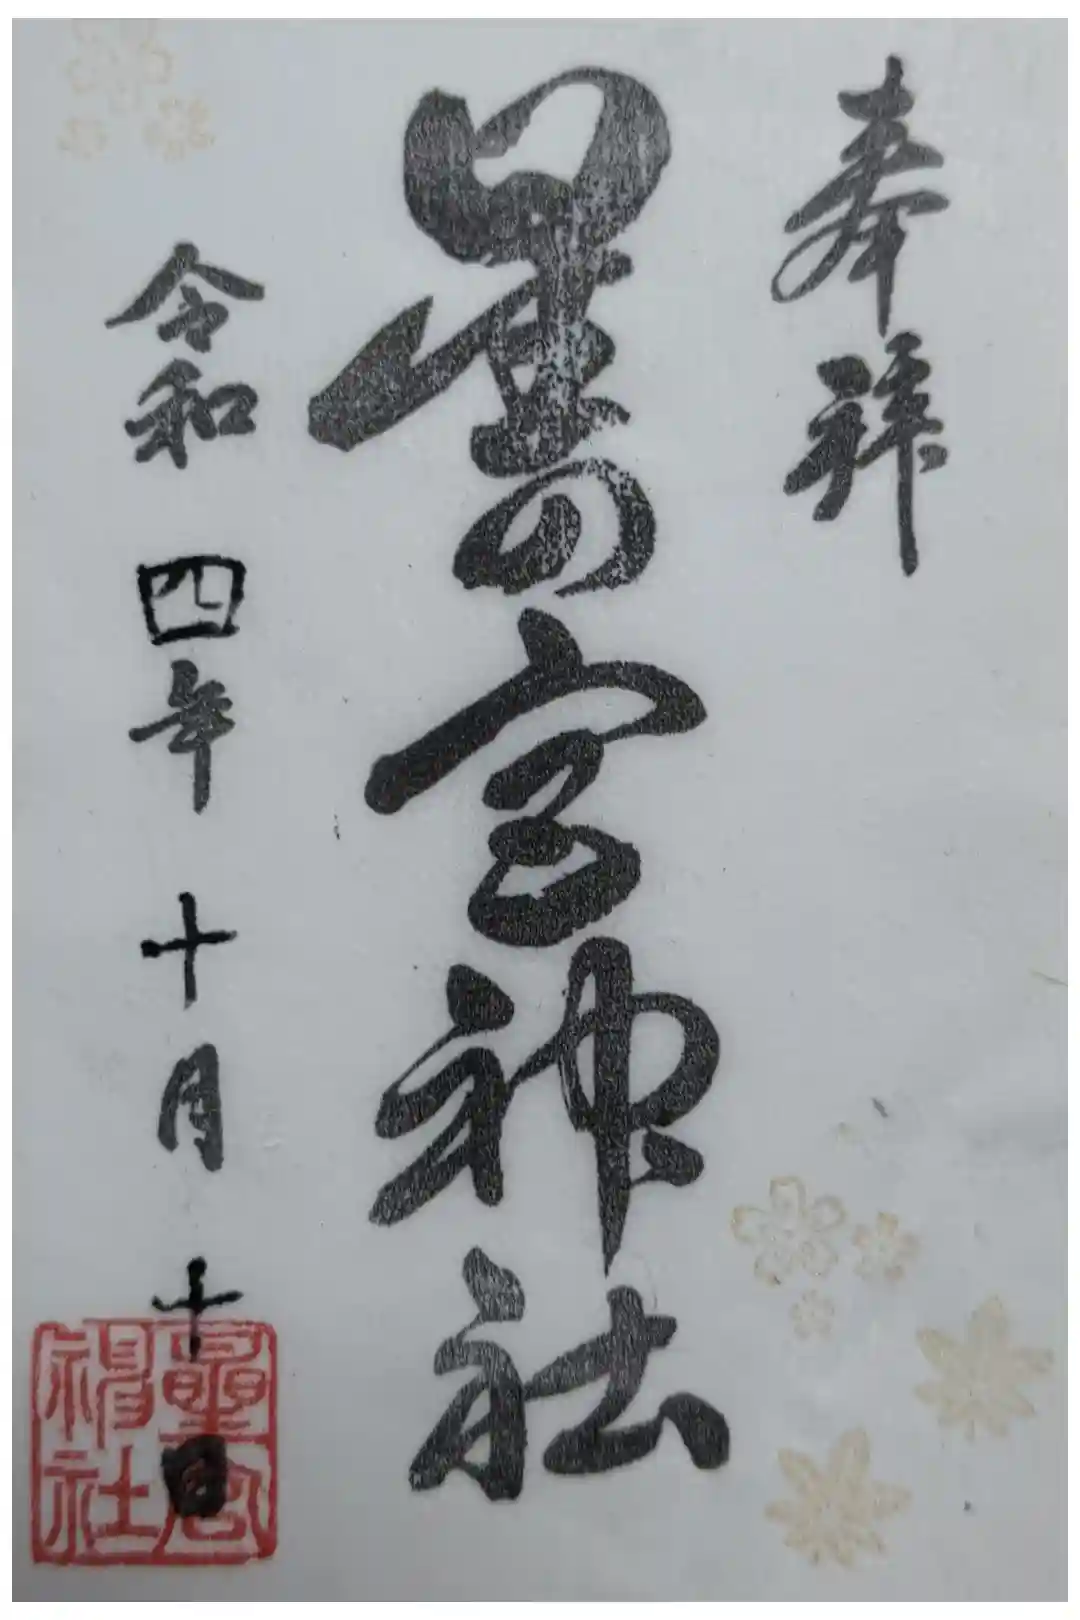 奉拝
星の宮神社
令和四年十月十日
星宮
神社